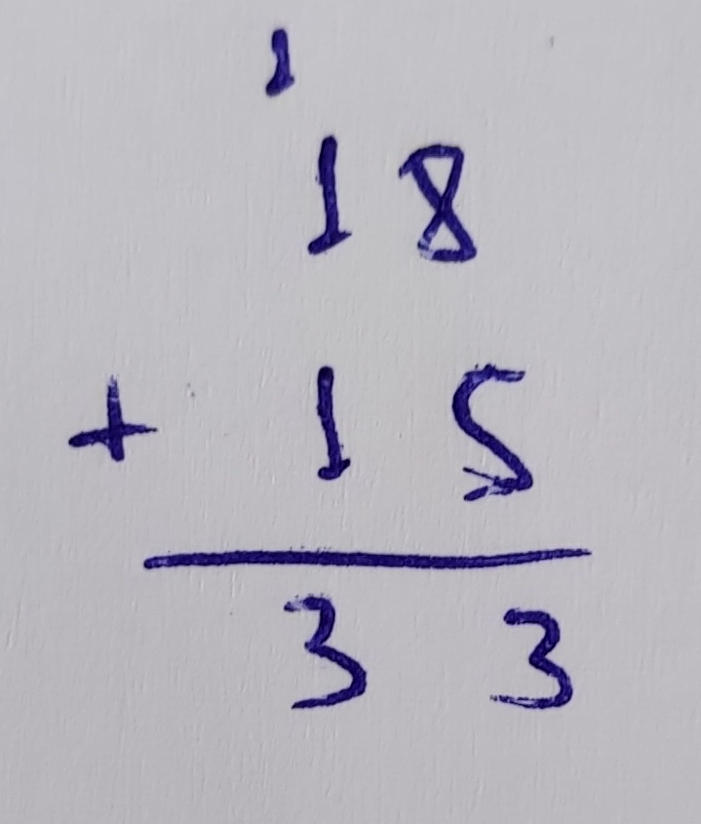 1
18
+ 15
33